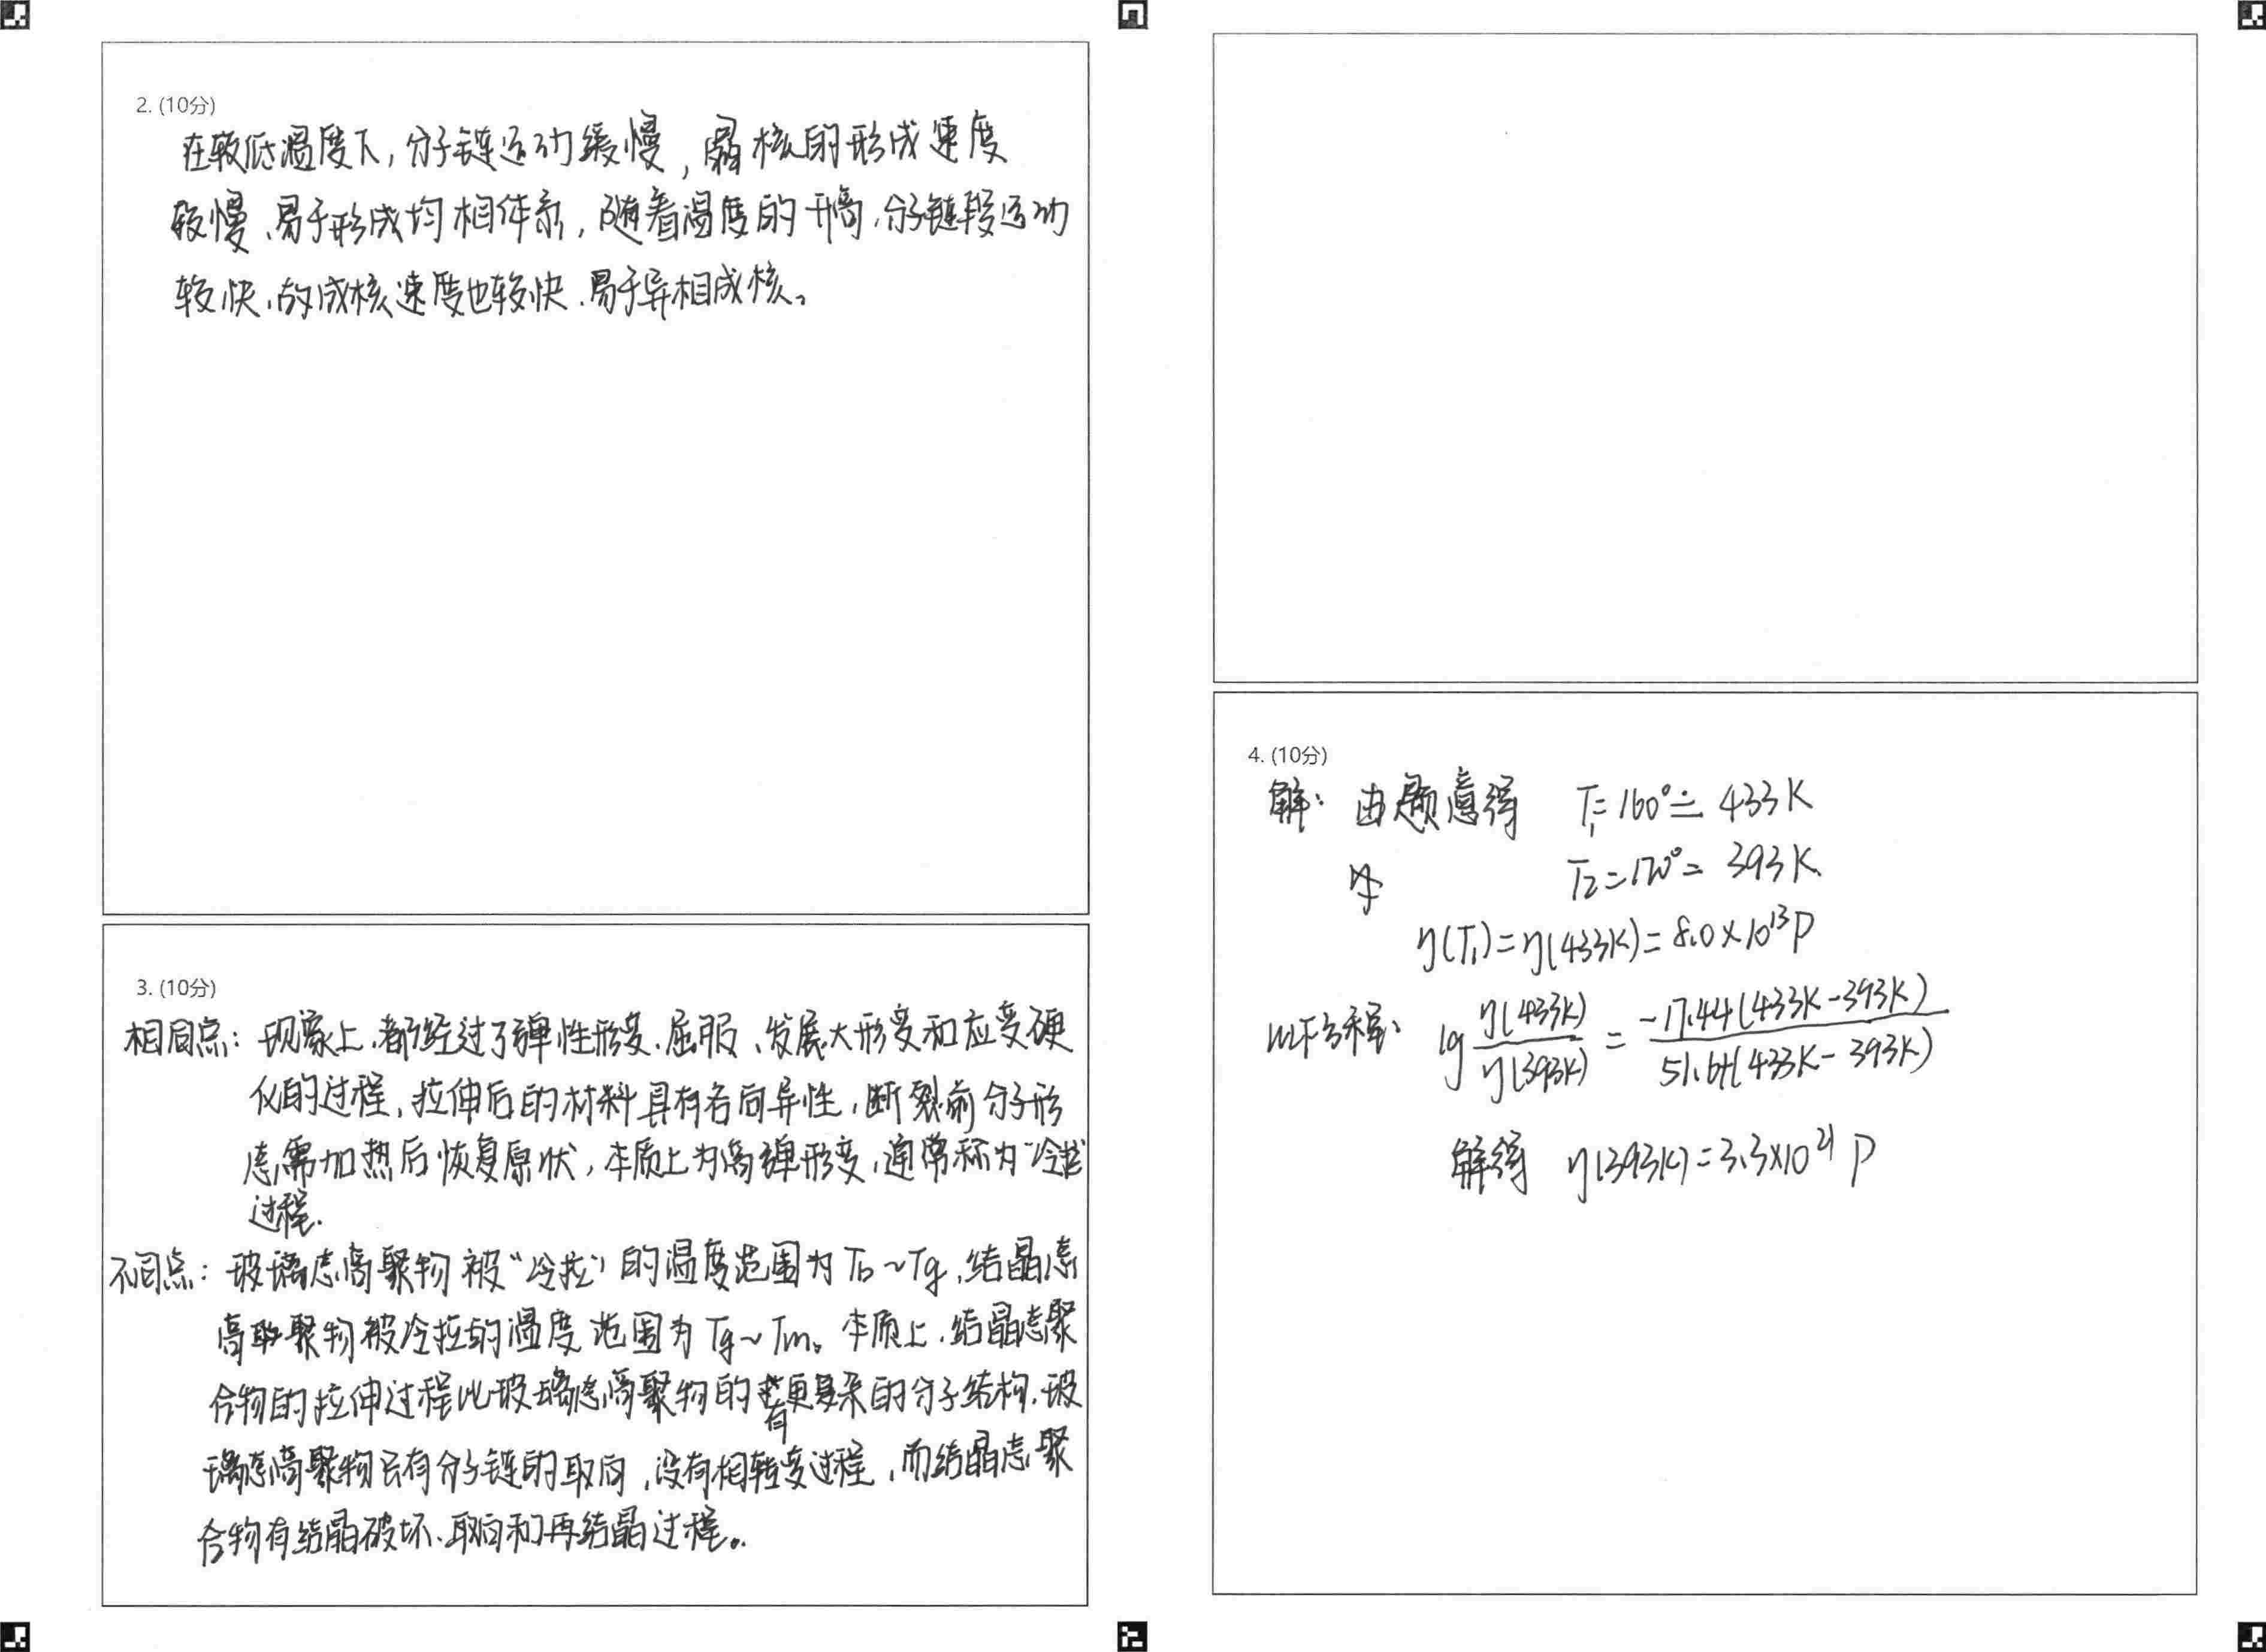 2. (10分)
在较低温度下，分子链运动缓慢，晶核的形成速度
较慢、易于形成均相体系，随着温度的升高，分子链段运动
较快，故成核速度也较快、易于异相成核。
3. (10分)
相同点：现象上，都经过了弹性形变、屈服、发展大形变和应变硬
化的过程，拉伸后的材料具有各向异性，断裂前分子形
态需加热后恢复原状，本质上为高弹形变，通常称为"冷拉"
过程.
不同点：玻璃态高聚物被"冷拉"的温度范围为Tb~Tg，结晶态
高聚物被冷拉的温度范围为Tg~Tm。本质上，结晶态聚
合物的拉伸过程比玻璃态高聚物的有更复杂的分子结构，玻
璃态高聚物只有分子链的取向，没有相转变过程，而结晶态聚
合物有结晶破坏、取向和再结晶过程。
4. (10分)
解：由题意得 T₁=160°=433K
T₂=120°=393K.
η(T₁)=η(433K)=8.0×10¹³P
WLF方程： lg η(433K)/η(393K) = -17.44(433K-393K)/51.6+(433K-393K)
解得 η(393K)=3.3×10²¹ P